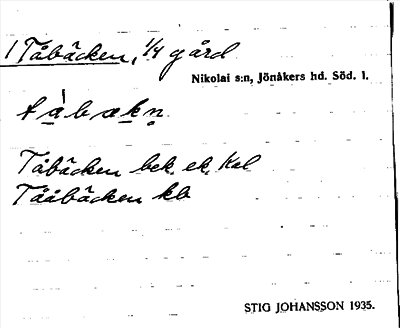 1 Tåbäcken, 1/4 gård
Nikolai s:n, Jönåkers hd. Söd. l.
tàbækn
Tåbäcken bek. ek. Kal
Tååbäcken kb
STIG JOHANSSON 1935.